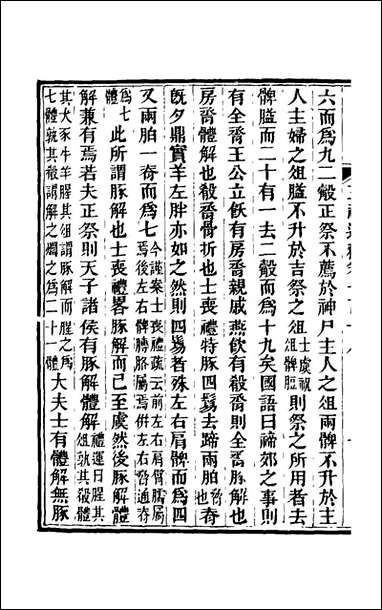 六而為九二觳正祭不薦於神尸主人之俎兩髀不升於主
人主婦之俎膉不升於吉祭之俎士虞祝俎髀脰則祭之所用者去
髀膉而二十有一去二觳而為十九矣國語曰禘郊之事則
有全脀王公立飫有房脀親戚燕飲有殽脀則全脀豚解也
房脀體解也殽脀骨折也士喪禮特豚四鬄去蹄兩胉也脊
既夕鼎實羊左胖亦如之然則四鬄者殊左右肩髀而為四
又兩胉一脊而為七今謹案士喪禮疏云前左右肩臂臑屬焉後左右髀膊胳屬焉併左右脅通脊
為七體此所謂豚解也士喪禮畧豚解而已至虞然後豚解體
解兼有焉若夫正祭則天子諸侯有豚解體解禮運曰腥其俎孰其殽體
其犬豕牛羊腥其俎謂豚解而腥之為七體孰其殽謂解之爓之為二十一體大夫士有體解無豚